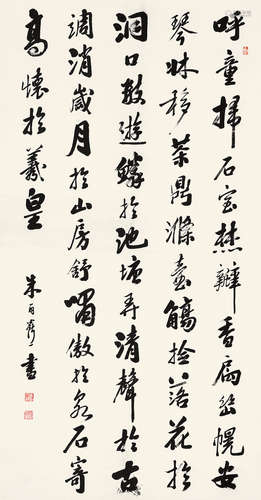 呼童掃石室焚瓣香扃岫幌安
琴牀移茶鼎滌壺觴拾落花於
洞口數遊鱗於池塘弄清聲於古
調消歲月於山房舒嘯傲於泉石寄
高懷於羲皇
朱書